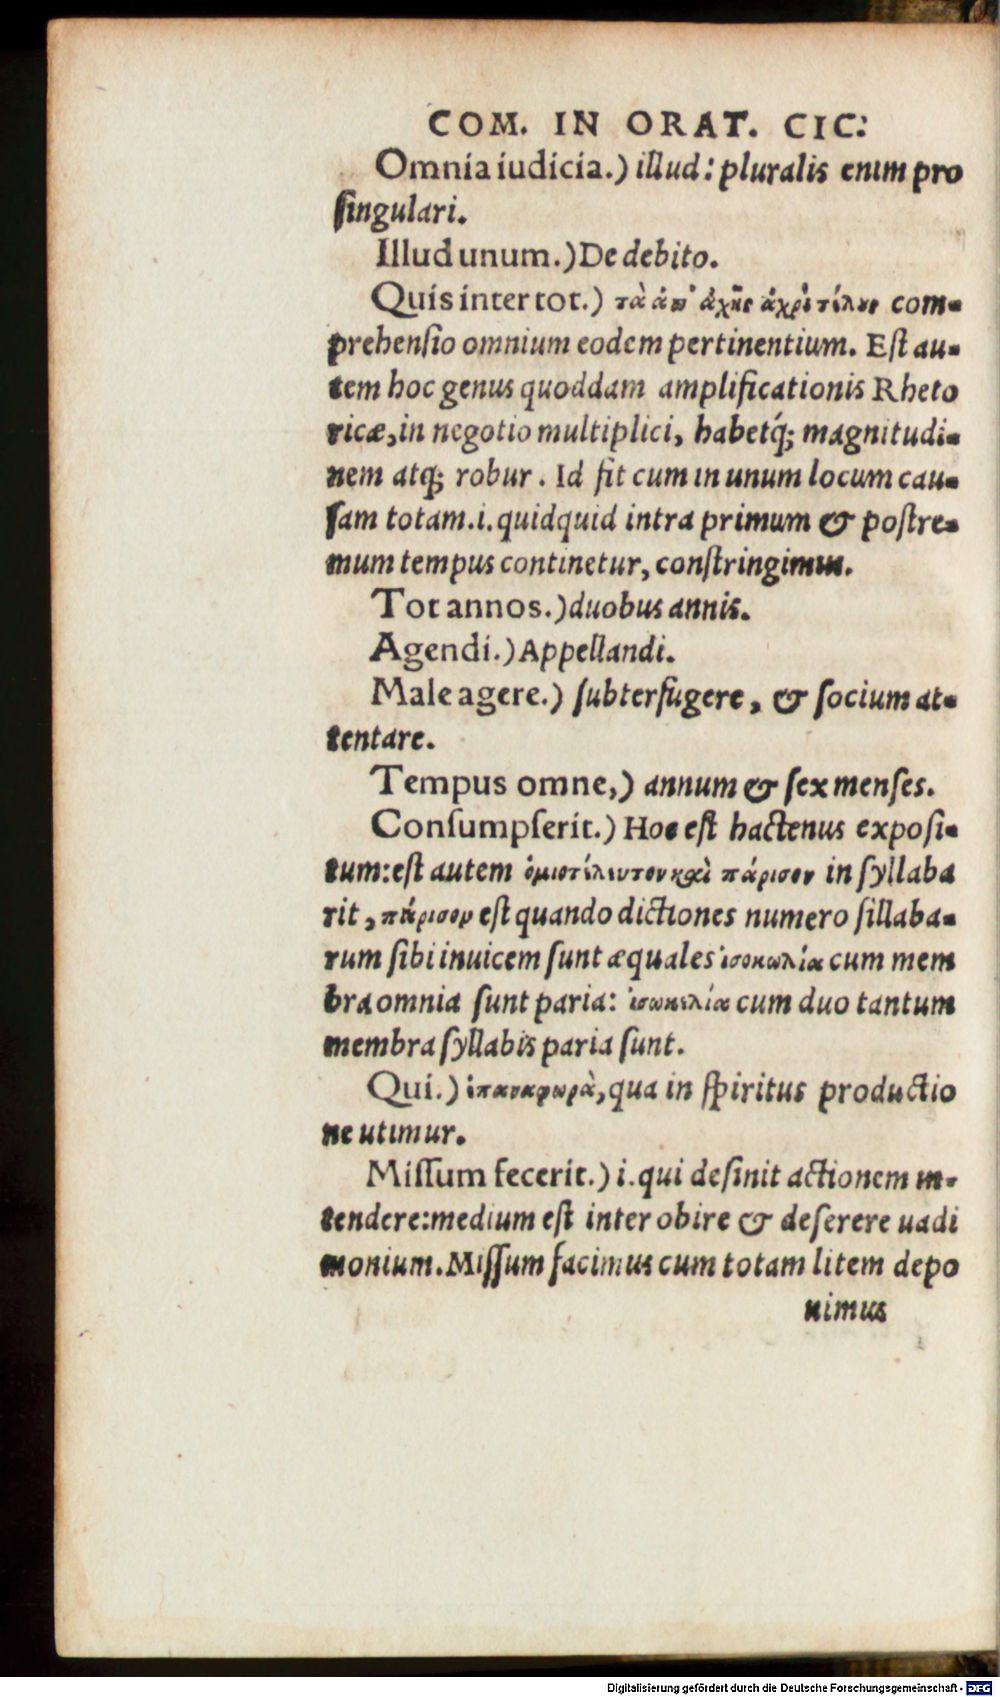 COM. IN ORAT. CIC:
Omnia iudicia.) illud: pluralis enim pro
singulari.
Illud unum.) De debito.
Quis inter tot.) τὰ ἀπ' ἀχῆς ἀχρὶ τέλους com-
prehensio omnium eodem pertinentium. Est au-
tem hoc genus quoddam amplificationis Rheto
ricæ, in negotio multiplici, habetq́; magnitudi-
nem atq; robur. Id fit cum in unum locum cau-
sam totam .i. quidquid intra primum & postre-
mum tempus continetur, constringimus.
Tot annos.) duobus annis.
Agendi.) Appellandi.
Male agere.) subterfugere, & socium at-
tentare.
Tempus omne,) annum & sex menses.
Consumpserit.) Hoc est hactenus exposi-
tum: est autem ὁμιοτέλευτον καὶ πάρισον in syllaba
rit, πάρισον est quando dictiones numero sillaba-
rum sibi inuicem sunt æquales ἰσοκωλία cum mem
bra omnia sunt paria: ἰσωκωλία cum duo tantum
membra syllabis paria sunt.
Qui.) qua in spiritus productio
ne utimur.
Missum fecerit.) i. qui desinit actionem in-
tendere: medium est inter obire & deserere uadi
monium. Missum facimus cum totam litem depo
nimus
Digitalisierung gefördert durch die Deutsche Forschungsgemeinschaft - DFG